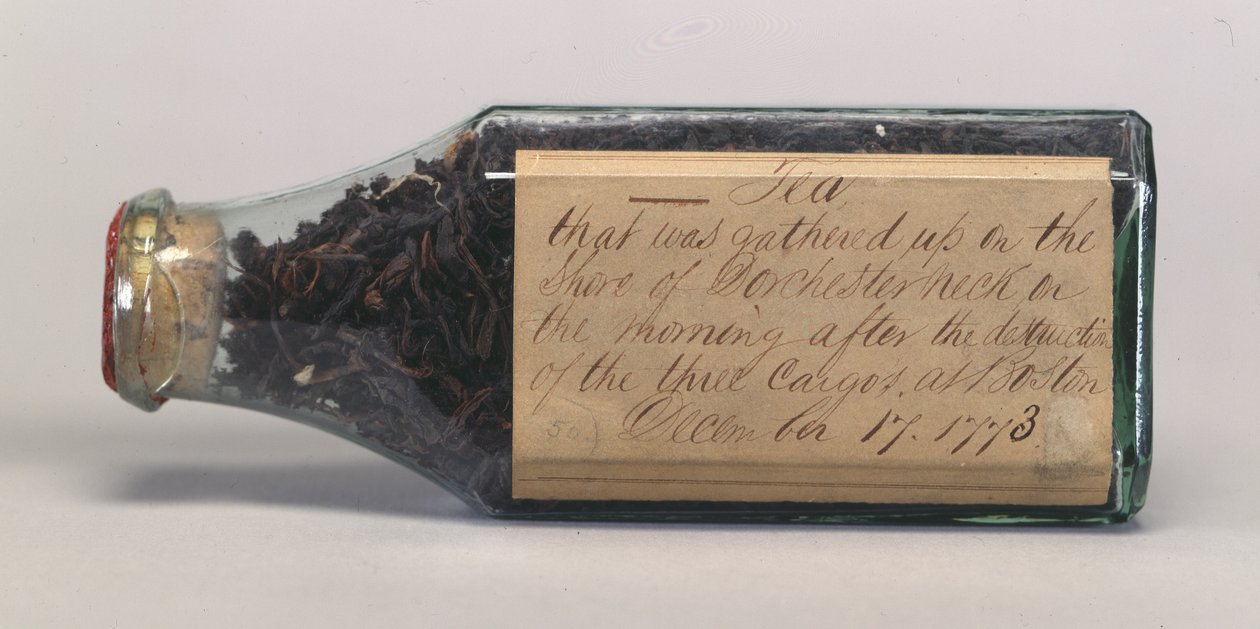 Tea
that was gathered up on the
Shore of Dorchester neck on
the morning after the destruction
of the three Cargos at Boston
December 17. 1773
50